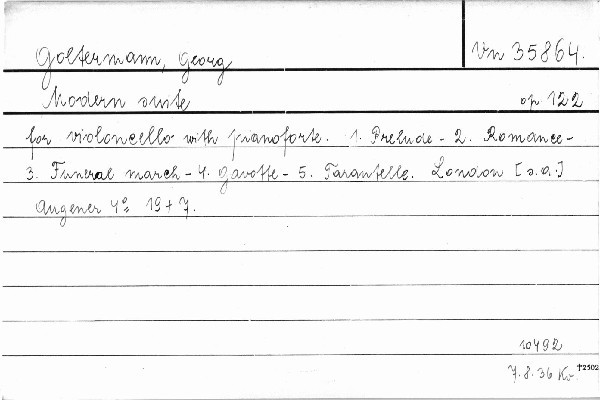 Goltermann, Georg
Vn 35864.
Modern suite op 122
for violoncello with pianoforte. 1. Prelude - 2. Romance -
3. Funeral march - 4. Gavotte - 5. Tarantelle. London [s.a.]
Augener 4° 19 + 7.
10492
7.8.36 Kv. †2502